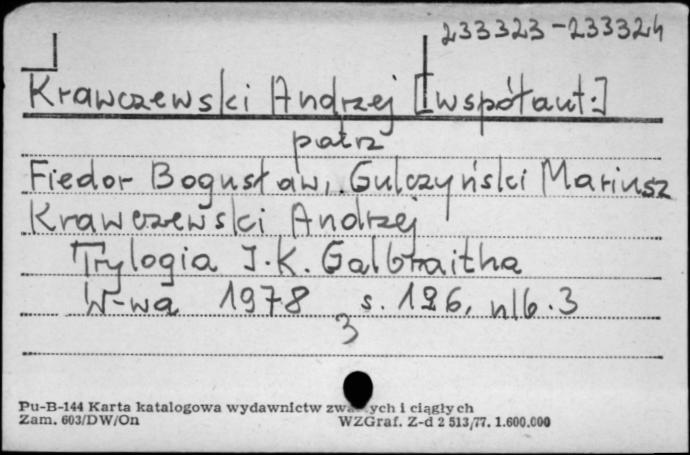 233323-233324
Krawczewski Andrzej [współaut:]
patrz
Fiedor Bogusław, Gulczyński Mariusz
Krawczewski Andrzej
Trylogia J.K. Galbraitha
W-wa 1978 s. 126, nlb. 3
3
Pu-B-144 Karta katalogowa wydawnictw i ciągłych
Zam. 603/DW/On WZGraf. Z-d 2 513/77. 1.600.000